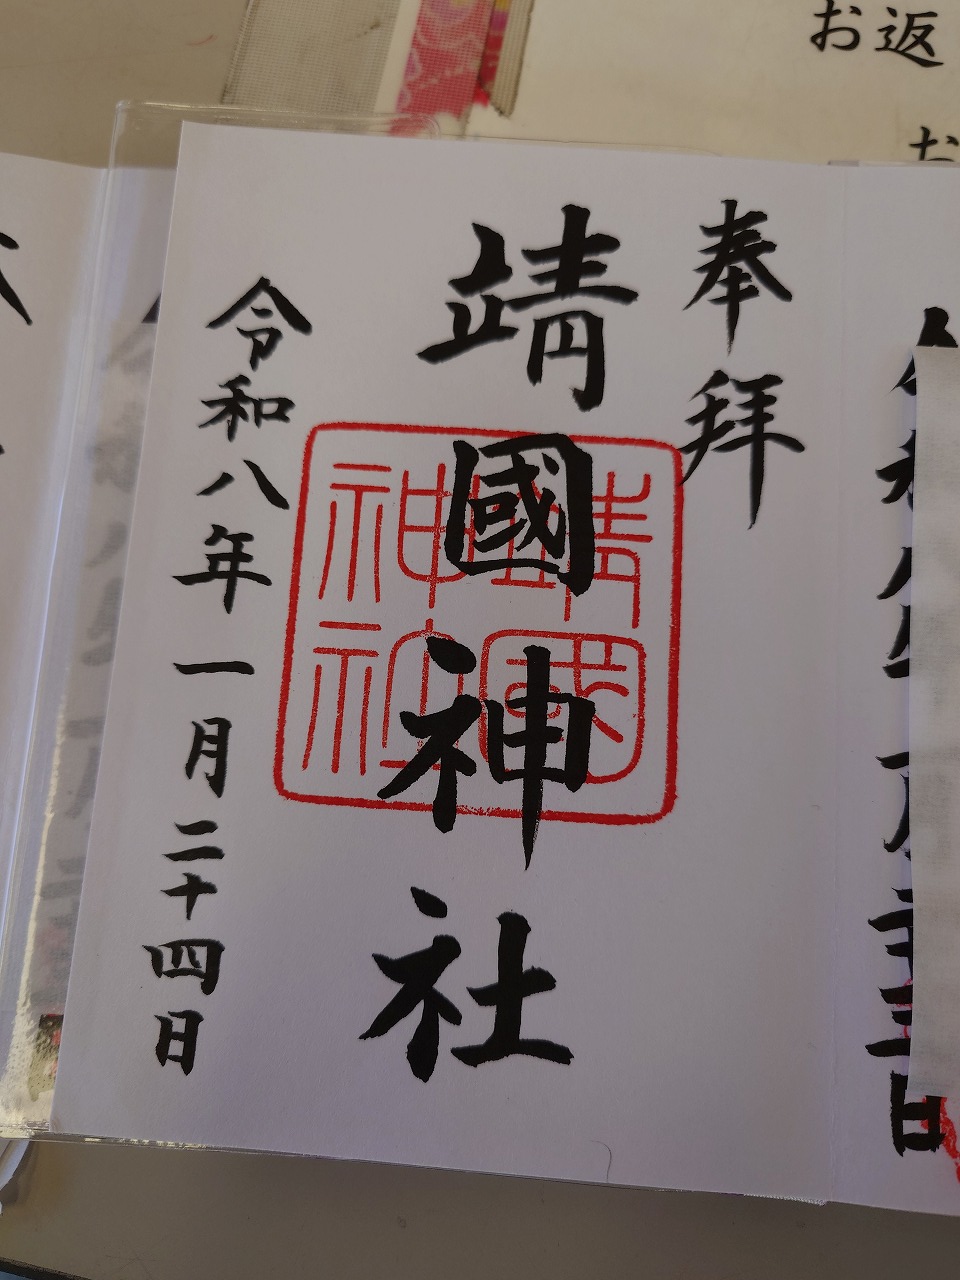 お返
お
奉拝
靖國神社
令和八年一月二十四日
靖國
神社